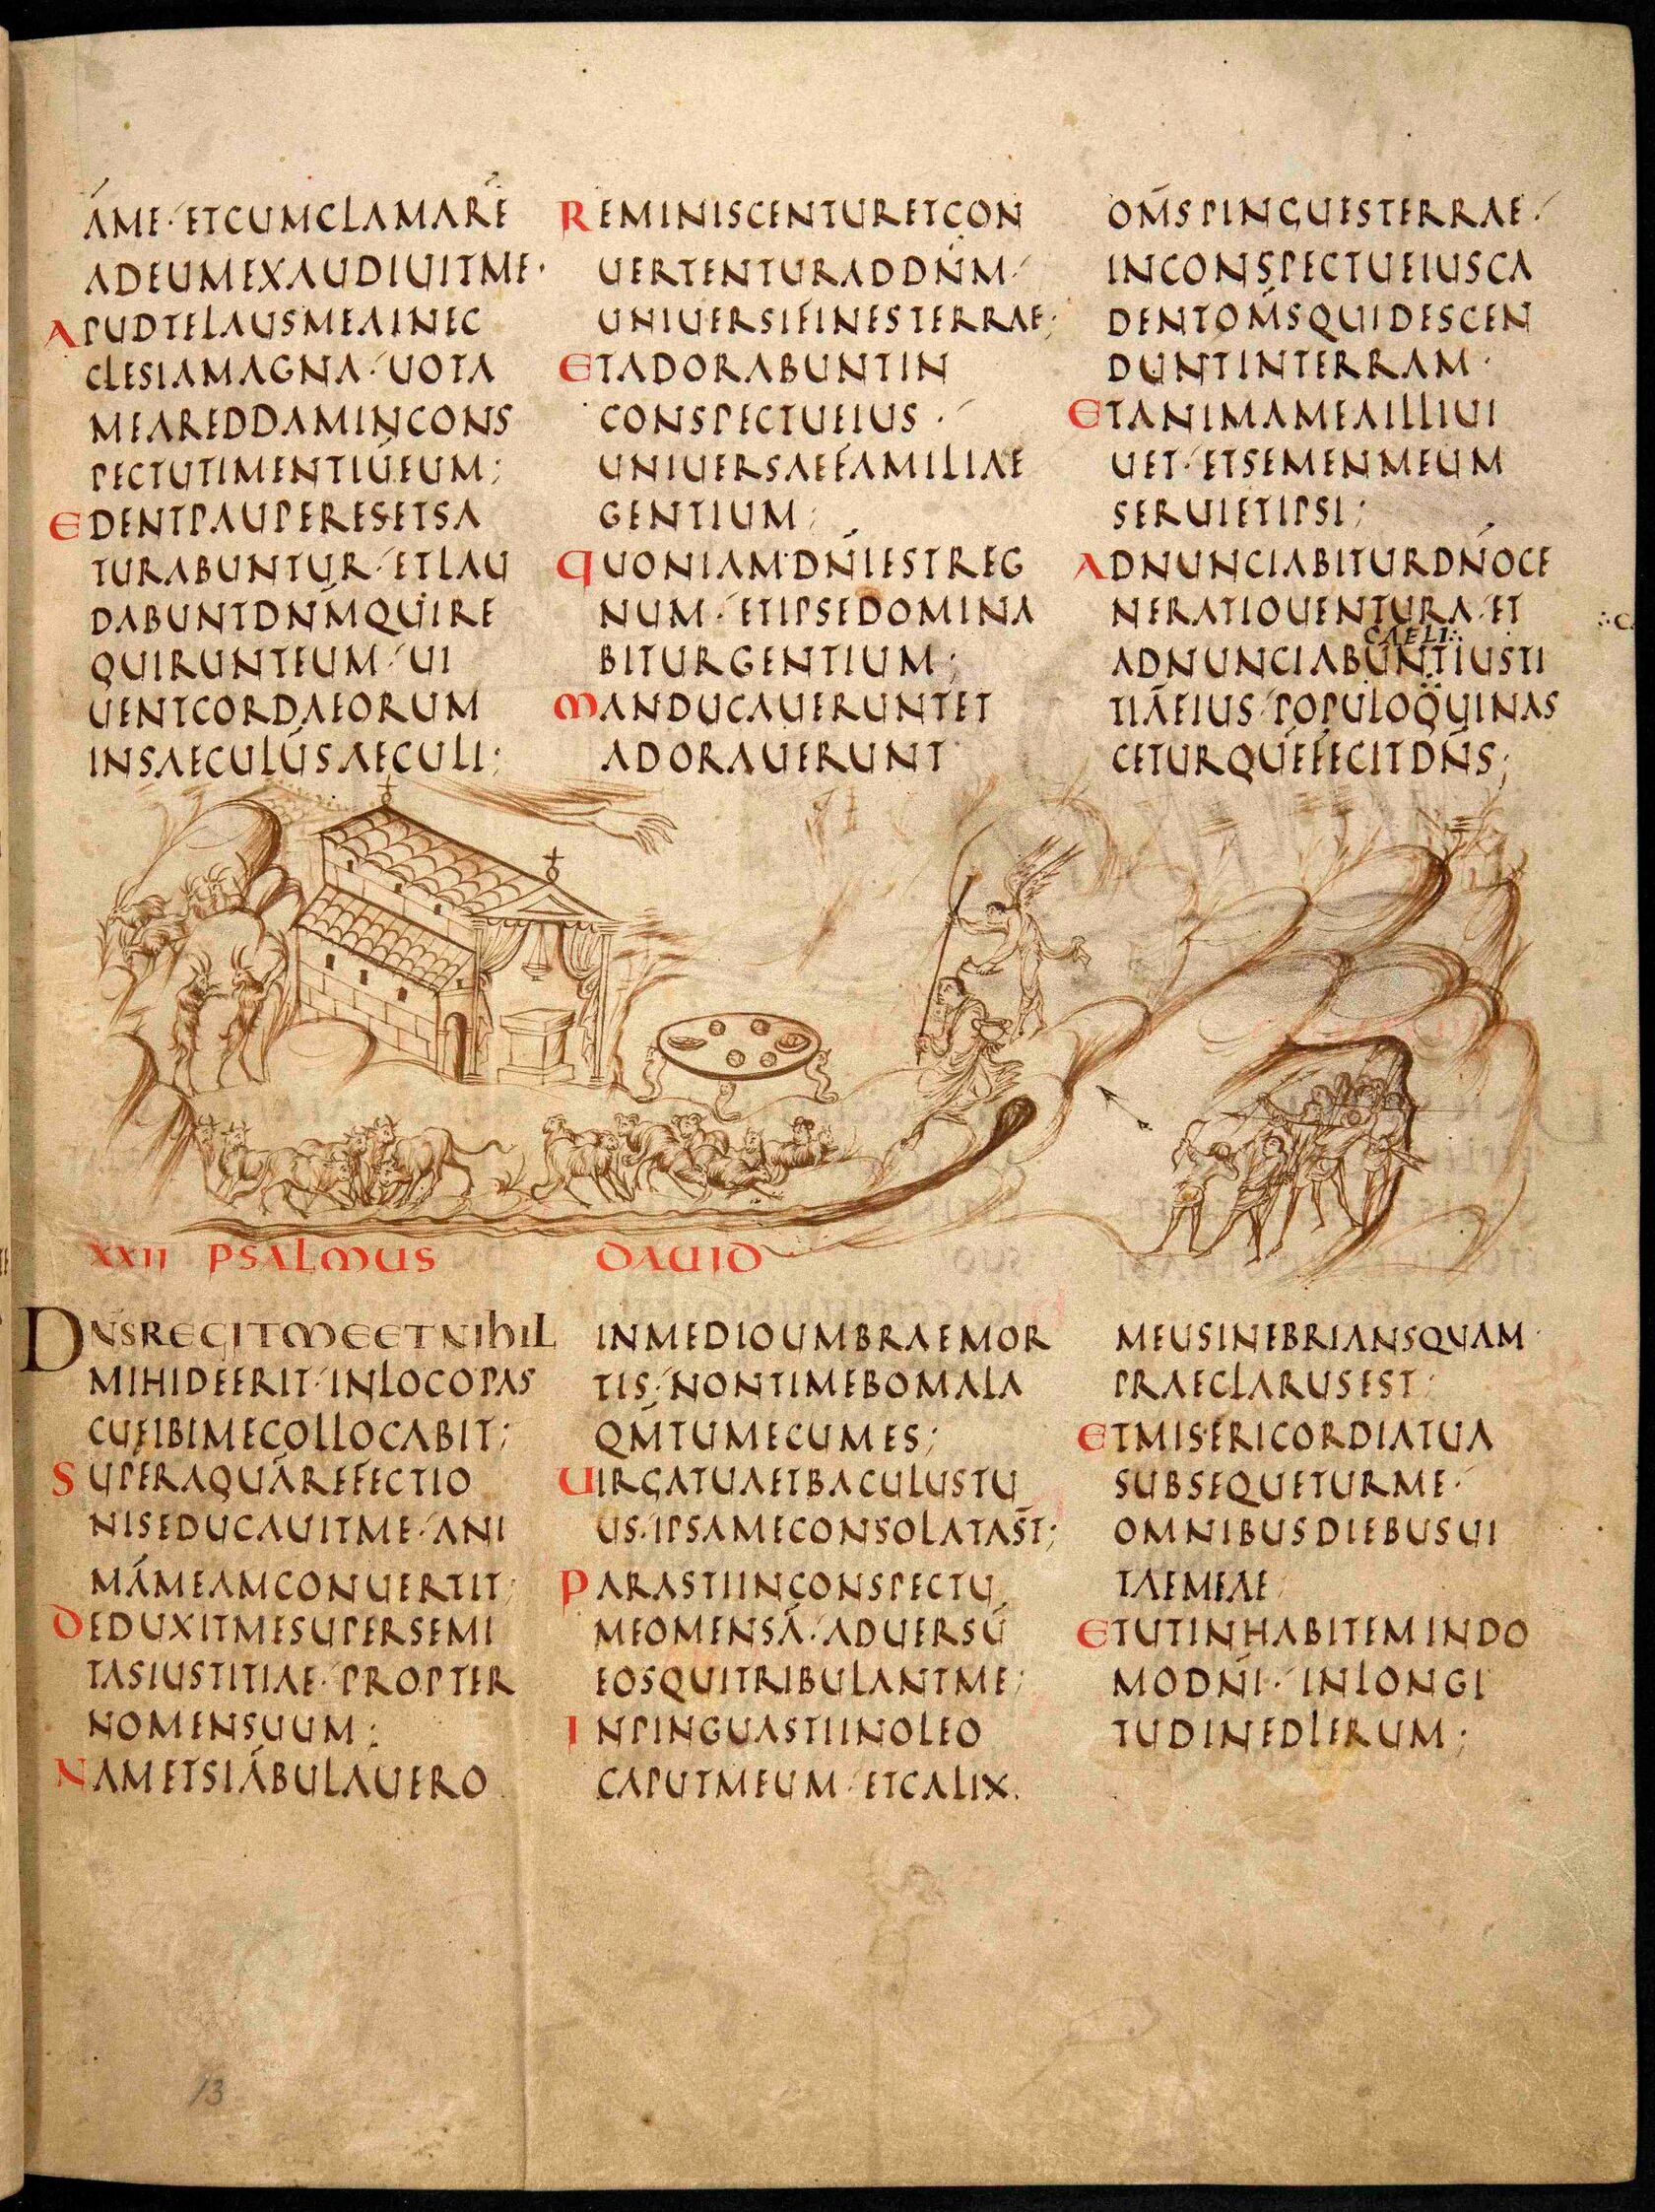 ÁME·ETCUMCLAMARĒ
ADEUMEXAUDIUITME·
APUDTELAUSMEAINEC
CLESIAMAGNA·UOTA
MEAREDDAMINCONS
PECTUTIMENTIŪEUM;
EDENTPAUPERESETSA
TURABUNTUR·ETLAU
DABUNTDN̄MQUIRE
QUIRUNTEUM·UI
UENTCORDAEORUM
INSAECULŪSAECULI;
REMINISCENTURETCON
UERTENTURADDN̄M·
UNIUERSIFINESTERRAE;
ETADORABUNTIN
CONSPECTUEIUS·
UNIUERSAEFAMILIAE
GENTIUM;
QUONIAMDN̄IESTREG
NUM·ETIPSEDOMINA
BITURGENTIUM;
MANDUCAUERUNTET
ADORAUERUNT
OM̄SPINGUESTERRAE·
INCONSPECTUEIUSCA
DENTOM̄SQUIDESCEN
DUNTINTERRAM·
ETANIMAMEAILLIUI
UET·ETSEMENMEUM
SERUIETIPSI;
ADNUNCIABITURDN̄OCE
NERATIOUENTURA·ET
CAELI:·
ADNUNCIABUNTIUSTI
TIĀEIUS·POPULOQUINAS
CETURQUĒFECITDN̄S;
XXII PSALMUS DAUID
DN̄SREGITMEETNIHIL
MIHIDEERIT·INLOCOPAS
CUEIBIMECOLLOCABIT;
SUPERAQUĀREFECTIO
NISEDUCAUITME·ANI
MÁMEAMCONUERTIT;
DEDUXITMESUPERSEMI
TASIUSTITIAE·PROPTER
NOMENSUUM;
NAMETSIÁBULAUERO
INMEDIOUMBRAEMOR
TIS·NONTIMEBOMALA
QM̄TUMECUMES;
UIRGATUAETBACULUSTU
US·IPSAMECONSOLATAST̄;
PARASTIINCONSPECTU
MEOMENSĀ·ADUERSŪ
EOSQUITRIBULANTME;
INPINGUASTIINOLEO
CAPUTMEUM·ETCALIX.
MEUSINEBRIANSQUAM
PRAECLARUSEST;
ETMISERICORDIATUA
SUBSEQUETURME·
OMNIBUSDIEBUSUI
TAEMEAE
ETUTINHABITEMINDO
MODN̄I·INLONGI
TUDINEDIERUM;
13